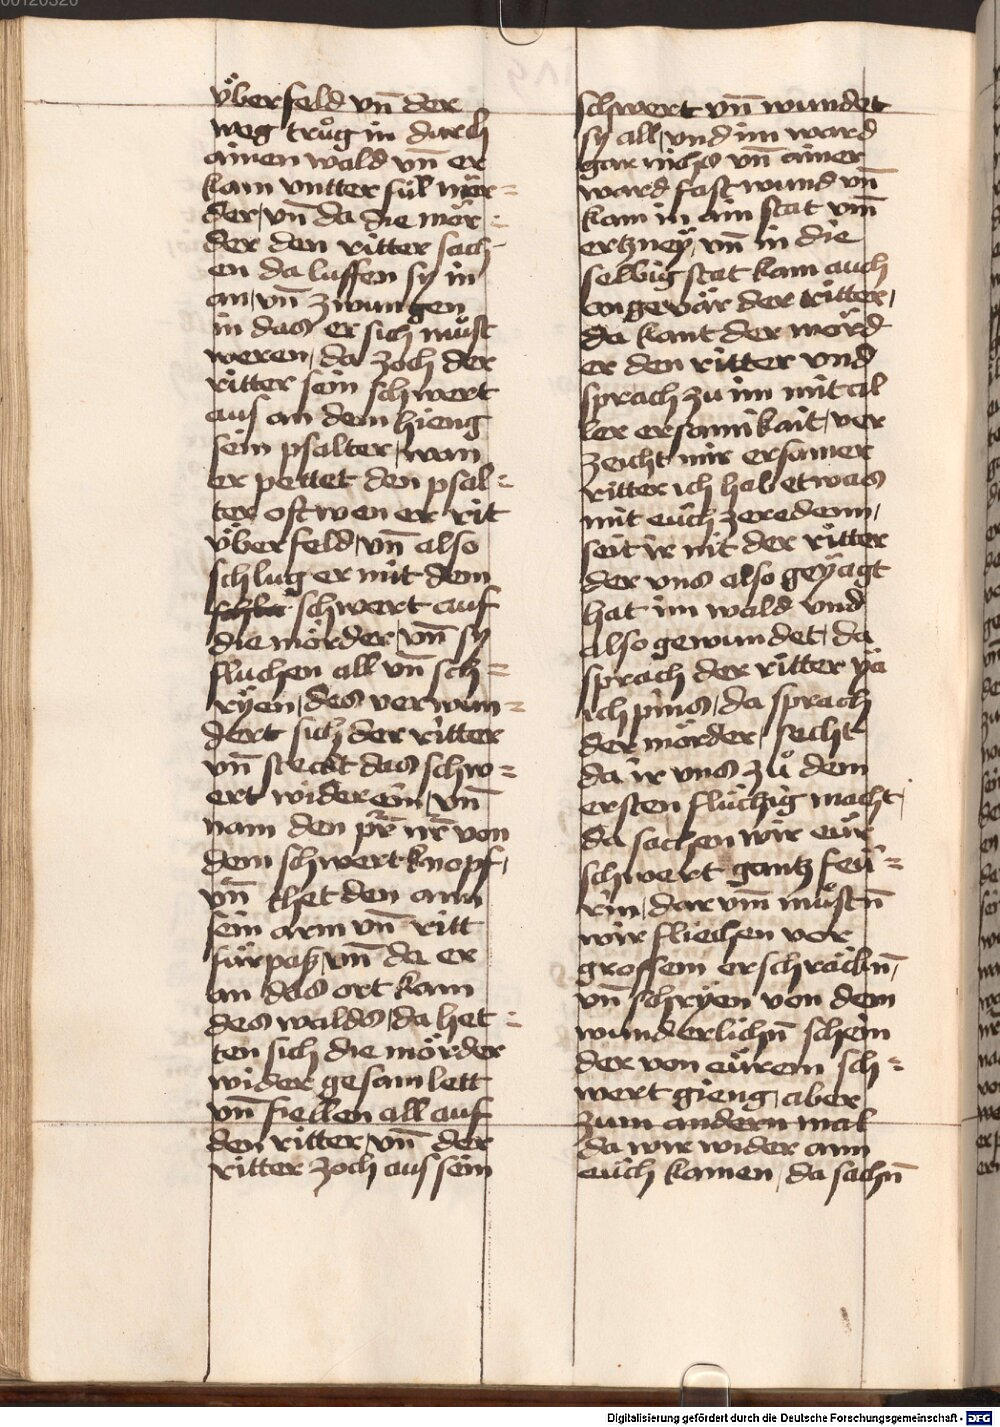 v̈berfeld vn̄ der
weg trůg in durch
ainen wald vn̄ er
kam vntter fül mör=
der / vn̄ da die mör=
der den ritter sach-
en da luffen sy in
an / vn̄ zwungen
in das er sich můst
weren / da zoch der
ritter sein schwert
aus an dem hieng
sein psalter / wan
er pettet den psal=
ter oft wen er rit
v̈berfeld / vn̄ also
schlug er mit dem
schwert auf
die mörder / vn̄ sy
fluchen all vn̄ sch=
ryen / des verwun=
dert sich der ritter
vn̄ steckt das schw=
ert wider ein / vn̄
nam den pr̄ nr̄ von
dem schwert knopf /
vn̄ thet den ann
sein arm vn̄ ritt
fürpas / vn̄ da er
an das ort kam
des walds / da het=
ten sich die mörder
wider gesamlett
vn̄ fiellen all auf
den ritter / vn̄ der
ritter zoch aus sein
schwert vn̄ wundet
sy all / vnd im ward
gar nichs vn̄ ainer
ward fast wund vn̄
kam in ain stat vm̄
ertzney / vn̄ in die
selbig stat kam auch
vngevär der ritter /
da kant der mörd-
er den ritter vnd
sprach zu im mit al
ler ersamikait / ver
zeicht mir ersamer
ritter ich hab etwas
mit euch zeredenn /
seit ir nit der ritter
der vns also geyagt
hat im wald vnd
also gewundet / da
sprach der ritter yä
ich pins / da sprach
der mörder / secht
da ir vns zů dem
ersten flüchtig macht /
da sachen wir eür
schwert gantz feü=
rin / darvm můstn̄
wir fliechen vor
grossem erschräckn̄ /
vn̄ schryen von dem
wunderlichn̄ schein
der von eürem sch=
wert gieng / aber
zum andern mal
da wir wider ann
euch kamen / da sachn̄
Digitalisierung gefördert durch die Deutsche Forschungsgemeinschaft - DFG